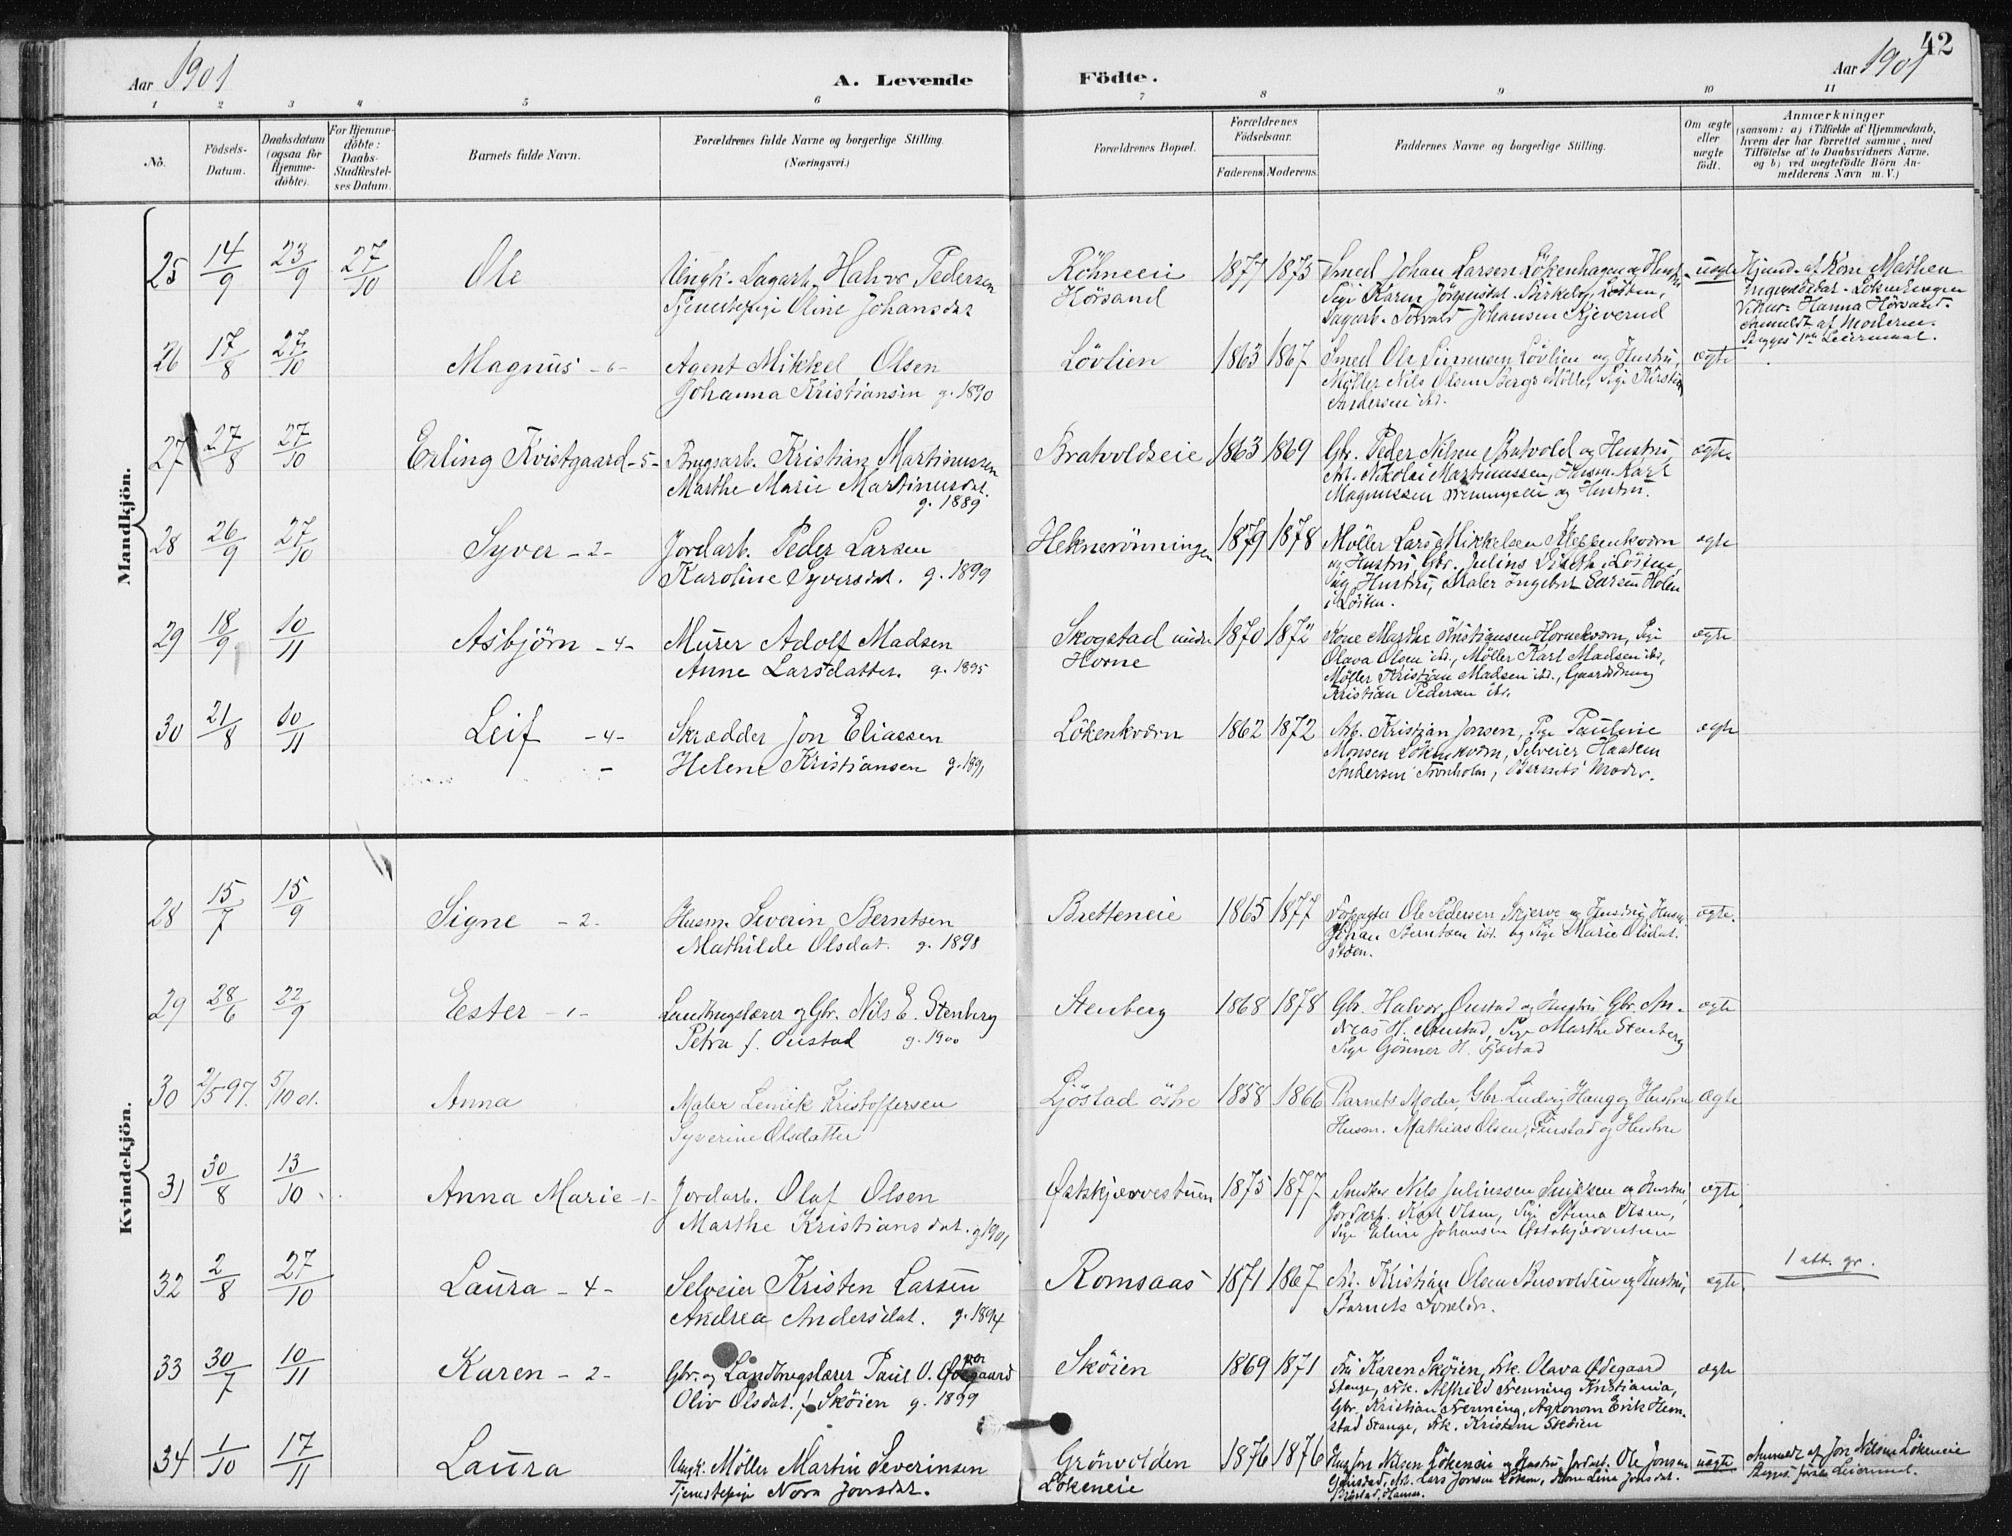 42
Aar 1901
A. Levende
Födte.
Aar 1901
1 2 3 4 5 6 7 8 9 10 11
Nö.
Födsels-
Datum.
Daabsdatum
(ogsaa för
Hjemme-
döbte).
For Hjemme-
döbte:
Daabs-
Stadfæstel-
ses Datum.
Barnets fulde Navn.
Forældrenes fulde Navne og borgerlige Stilling.
(Næringsvei.)
Forældrenes Bopæl.
Forældrenes
Födselsaar.
Faderens. Moderens.
Faddernes Navne og borgerlige Stilling.
Om ægte
eller
uægte
födt.
Anmærkninger
(saasom: a) i Tilfælde af Hjemmedaab,
hvem der har forrettet samme, med
Tilföielse af to Daabsvidners Navne,
og b) ved uægtefödte Börn An-
melderens Navn m. V.)
Mandkjön.
25 14/9 23/9 27/10 Ole Ungk. Dagarb. Halvor Pedersen Röhneeie 1877 1875 Smed Johan Larsen Lökenhagen og Hustru uægte
Tjenestepige Oline Johansdat Hörsand Pige Karen
Dagarb. Torvald Johansen Kjeverud
Hanna Hörsand.
Anmeldt af Moderen.
26 17/8 27/10 Magnus - 6 - Agent Mikkel Olsen Lövlien 1863 1867 Smed Ole Simensen Lövlien og Hustru, ægte
Johanna Kristiansen g. 1890 Möller Nils Olsen Bergs Mölle, Pige Kirstine
Andersen ibd.
27 27/8 27/10 Erling Kvistgaard - 5 - Brugsarb. Kristian Martinussen Bratvoldseie 1863 1869 Gbr. Peder Nilsen Bratvold og Hustru, ægte
Marthe Marie Martinusdat. Arb. Nikolai Martinussen, Husm. Karl
g. 1889 Magnussen og Hustru.
28 26/9 27/10 Syver - 2 - Jordarb. Peder Larsen Heknerönningen 1879 1878 Möller Lars Mikkelsen Kleppenkværn ægte
Karoline Syversdat. g. 1899 og Hustru, Gbr. Julius Viseth i Löiten,
og Hustru, Maler Ingebret Larsen Holen
i Löiten.
29 18/9 10/11 Asbjörn - 4 - Murer Adolf Madsen Skogstad under 1870 1872 Kone Marthe Kristiansen Hornekværn, Pige ægte
Anne Larsdatter. g. 1895 Horne Olava Olsen ibd., Möller Karl Madsen ibd.,
Möller Kristian Madsen ibd., Gaardsdreng
Kristian Pedersen ibd.
30 21/8 10/11 Leif - 4 - Skrædder Jon Eliassen Lökenkværn 1862 1872 Arb. Kristian Jonsen, Pige Pauline ægte
Helene Kristiansen g. 1891 Monsen Lökenkværn, Selveier Haaken
Andersen Tronholm, Barnets Moder.
Kvindekjön.
28 15/7 15/9 Signe - 2 - Husm. Severin Berntsen Bretteneie 1865 1877 Forpagter Ole Pedersen Skjerve og Hustru, Husm. ægte.
Mathilde Olsdat. g. 1898 Johan Berntsen ibd. og Pige Marie Olsdat.
Støen.
29 28/6 22/9 Ester - 1 - Landbrugslærer og Gbr. Nils E. Stenberg Stenberg 1868 1878 Gbr. Halvor Önstad og Hustru, Gbr. An- ægte
Petra f. Önstad g. 1900 dreas H. Önstad, Pige Marthe Stenberg
Pige Gönner H. Fjöstad
30 2/5 97. 5/10 01. Anna Maler Lenick Kristoffersen Ljöstad östre 1858 1866 Barnets Moder, Gbr. Ludvig Haug og Hustru Ægte
Syverine Olsdatter Husm. Mathias Olsen, Finstad og Hustru
31 30/8 13/10 Anna Marie - 1 - Jordarb. Olaf Olsen Østskjærvestuen 1875 1877 Snedker Nils Juliussen Snikken og Hustru, ægte
Marthe Kristiansdat. g. 1901 Jordarb. Karl Olsen, Pige Anna Olsen,
Pige Eline Johansen Østskjærvestuen
32 2/8 27/10 Laura - 4 - Selveier Kristen Larsen Romsaas 1871 1867 Arb. Kristian Olsen og Hustru, ægte 1 att. gr.
Andrea Andersdat. g. 1894 Barnets Forældre.
33 30/7 10/11 Karen - 2 - Gbr. og Landbrugslærer Paul O. Ødegaard Skøien 1869 1871 Fru Karen Skøien, Frk. Olava Ødegaard ægte
Oliv Olsdat. f. Skøien g. 1899 Stange, Frk. Alfhild Frenning Kristiania,
Gbr. Kristian Frenning, Agronom Erik Hem-
stad Stange, Frk. Kristine Skøien
34 1/10 17/11 Laura Ungk. Möller Martin Severinsen Grönvolden 1876 1876 Husm. Jon Nilsen Lökeneie og Hustru, Jordarb. Ole Jonsen uægte Anmeldt af Jon Nilsen Lökeneie
Tjenestepige Nora Jonsdat. Lökeneie Arb. Lars Jonsen Löken, Kone Lina Jonsdat.